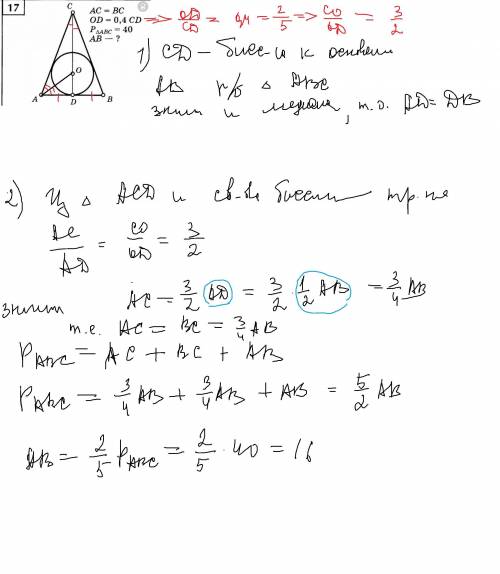 17
C
AC = BC
OD = 0,4 CD => OD/CD = 0,4 = 2/5 => CO/OD = 3/2
P△ABC = 40
AB — ?
O
A D B
1) CD – бисс-са к основанию
AB р/б △ ABC
значит и медиана, т.о. AD = DB
2) Из △ ACD и св-ва биссектрисы тр-ка
AC/AD = CO/OD = 3/2
значит AC = 3/2 AD = 3/2 · 1/2 AB = 3/4 AB
т.е. AC = BC = 3/4 AB
PABC = AC + BC + AB
PABC = 3/4 AB + 3/4 AB + AB = 5/2 AB
AB = 2/5 PABC = 2/5 · 40 = 16